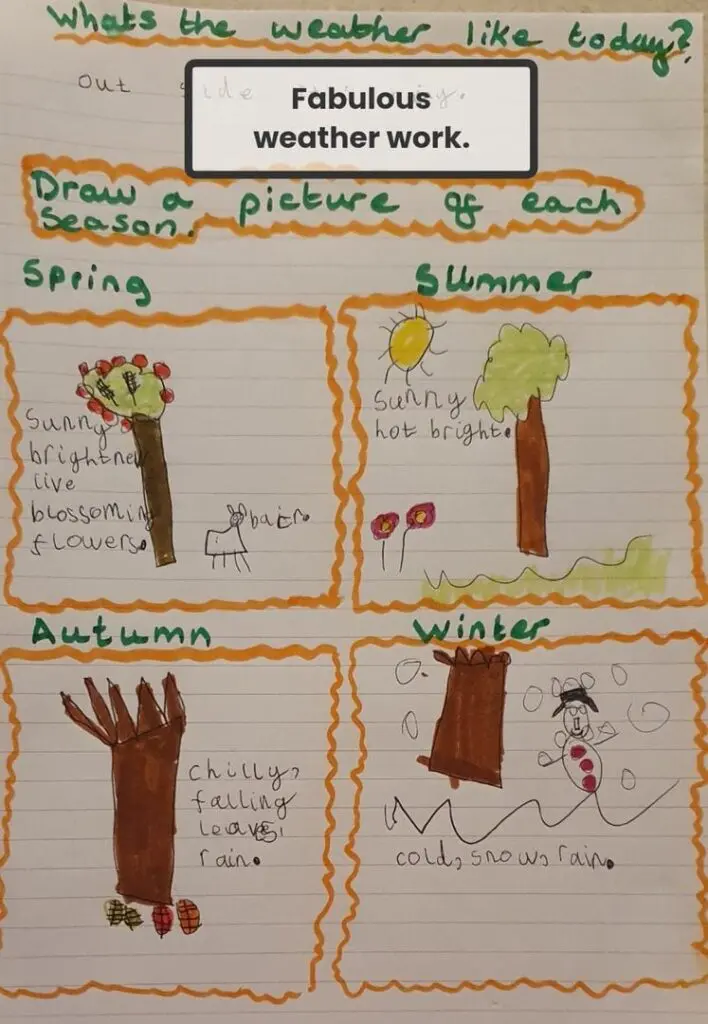 Whats the weather like today?
out side
Fabulous
weather work.
Draw a picture of each
season.
Spring
Sunny
bright new
live
blossoming
flowers.
Summer
Sunny
hot bright.
Autumn
chilly,
falling
leaves,
rain.
Winter
cold, snow, rain.